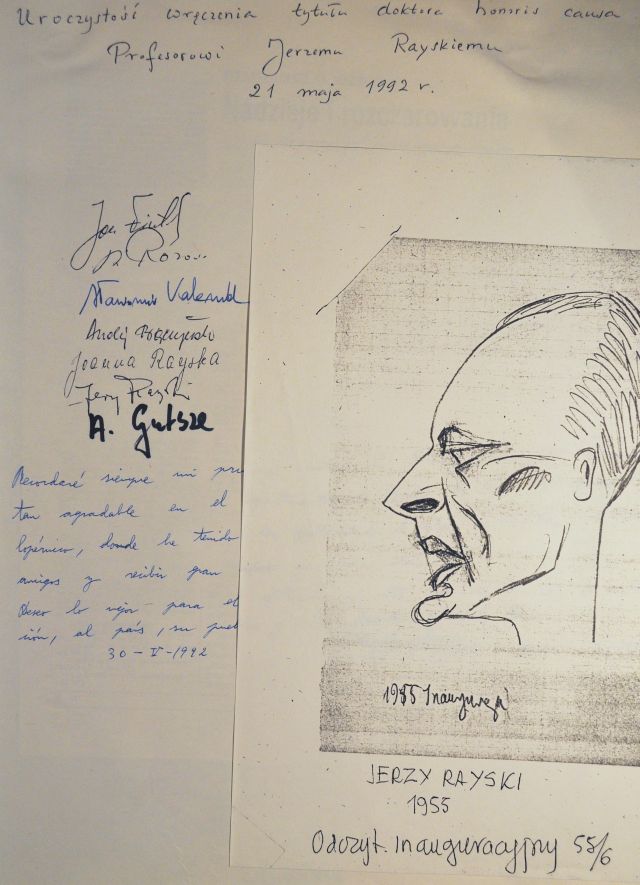 Uroczystość wręczenia tytułu doktora honoris causa
Profesorowi Jerzemu Rayskiemu
21 maja 1992 r.
Jan
Sławomir
Andrzej
Joanna Rayska
Jerzy Rayski
A. Gutsze
Recordaré siempre mi
tan agradable en el
lopérnico, donde he tenido
amigos y recibir gran
Deseo lo mejor para el
ión, al país, su
30-V-1992
1955 Inauguracja
JERZY RAYSKI
1955
Odczyt. Inauguracyjny 55/6